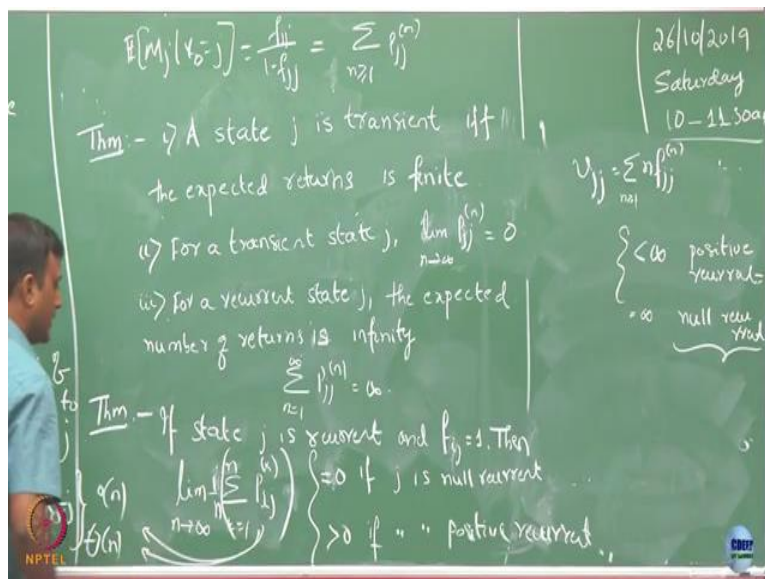 E[M_j | X_0 = j] = f_jj / (1 - f_jj) = Σ_{n≥1} P_jj^(n)
Thm :- i) A state j is transient iff
the expected returns is finite
ii) For a transient state j, lim_{n→∞} P_jj^(n) = 0
iii) For a recurrent state j, the expected
number of returns is infinity
Σ_{n=1}^{∞} P_jj^(n) = ∞.
Thm :- If state j is recurrent and f_ij = 1. Then
lim_{n→∞} 1/n ( Σ_{k=1}^{n} P_ij^(k) ) { = 0 if j is null recurrent
> 0 if " " positive recurrent
to
j
o(n)
Θ(n)
26/10/2019
Saturday
10-11.30am
ν_jj = Σ_{n≥1} n f_jj^(n)
{ < ∞ positive
recurrent
= ∞ null recu
rrent
NPTEL
CDEEP